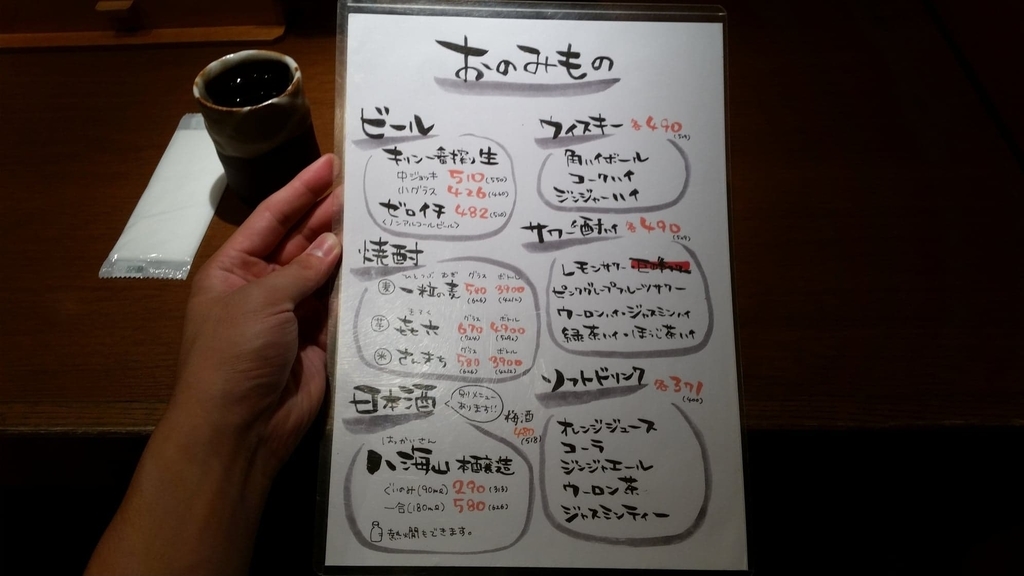 おのみもの
ビール
キリン一番搾り生
中ジョッキ 510(550)
小グラス 426(460)
ゼロイチ 482(520)
(ノンアルコールビール)
焼酎
ひとつぶ むぎ グラス ボトル
麦 一粒の麦 580 3900
(626) (4212)
きろく グラス ボトル
芋 㐂六 670 4900
グラス ボトル
米 さんまち 580 3900
(626) (4212)
日本酒
別メニュー
あります!!
梅酒
480
(518)
はっかいさん
八海山 本醸造
ぐいのみ(90mℓ) 290(313)
一合(180mℓ) 580(626)
熱燗もできます。
ウィスキー 各490
(529)
角ハイボール
コークハイ
ジンジャーハイ
サワー・酎ハイ 各490
(529)
レモンサワー
ピンクグレープフルーツサワー
ウーロンハイ・ジャスミンハイ
緑茶ハイ・ほうじ茶ハイ
ソフトドリンク 各371
(400)
オレンジジュース
コーラ
ジンジャエール
ウーロン茶
ジャスミンティー